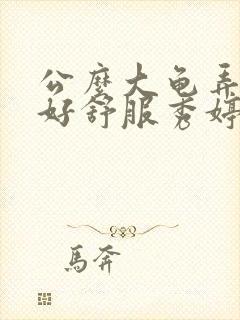 公麽大龟弄
好舒服秀婷
馬奔